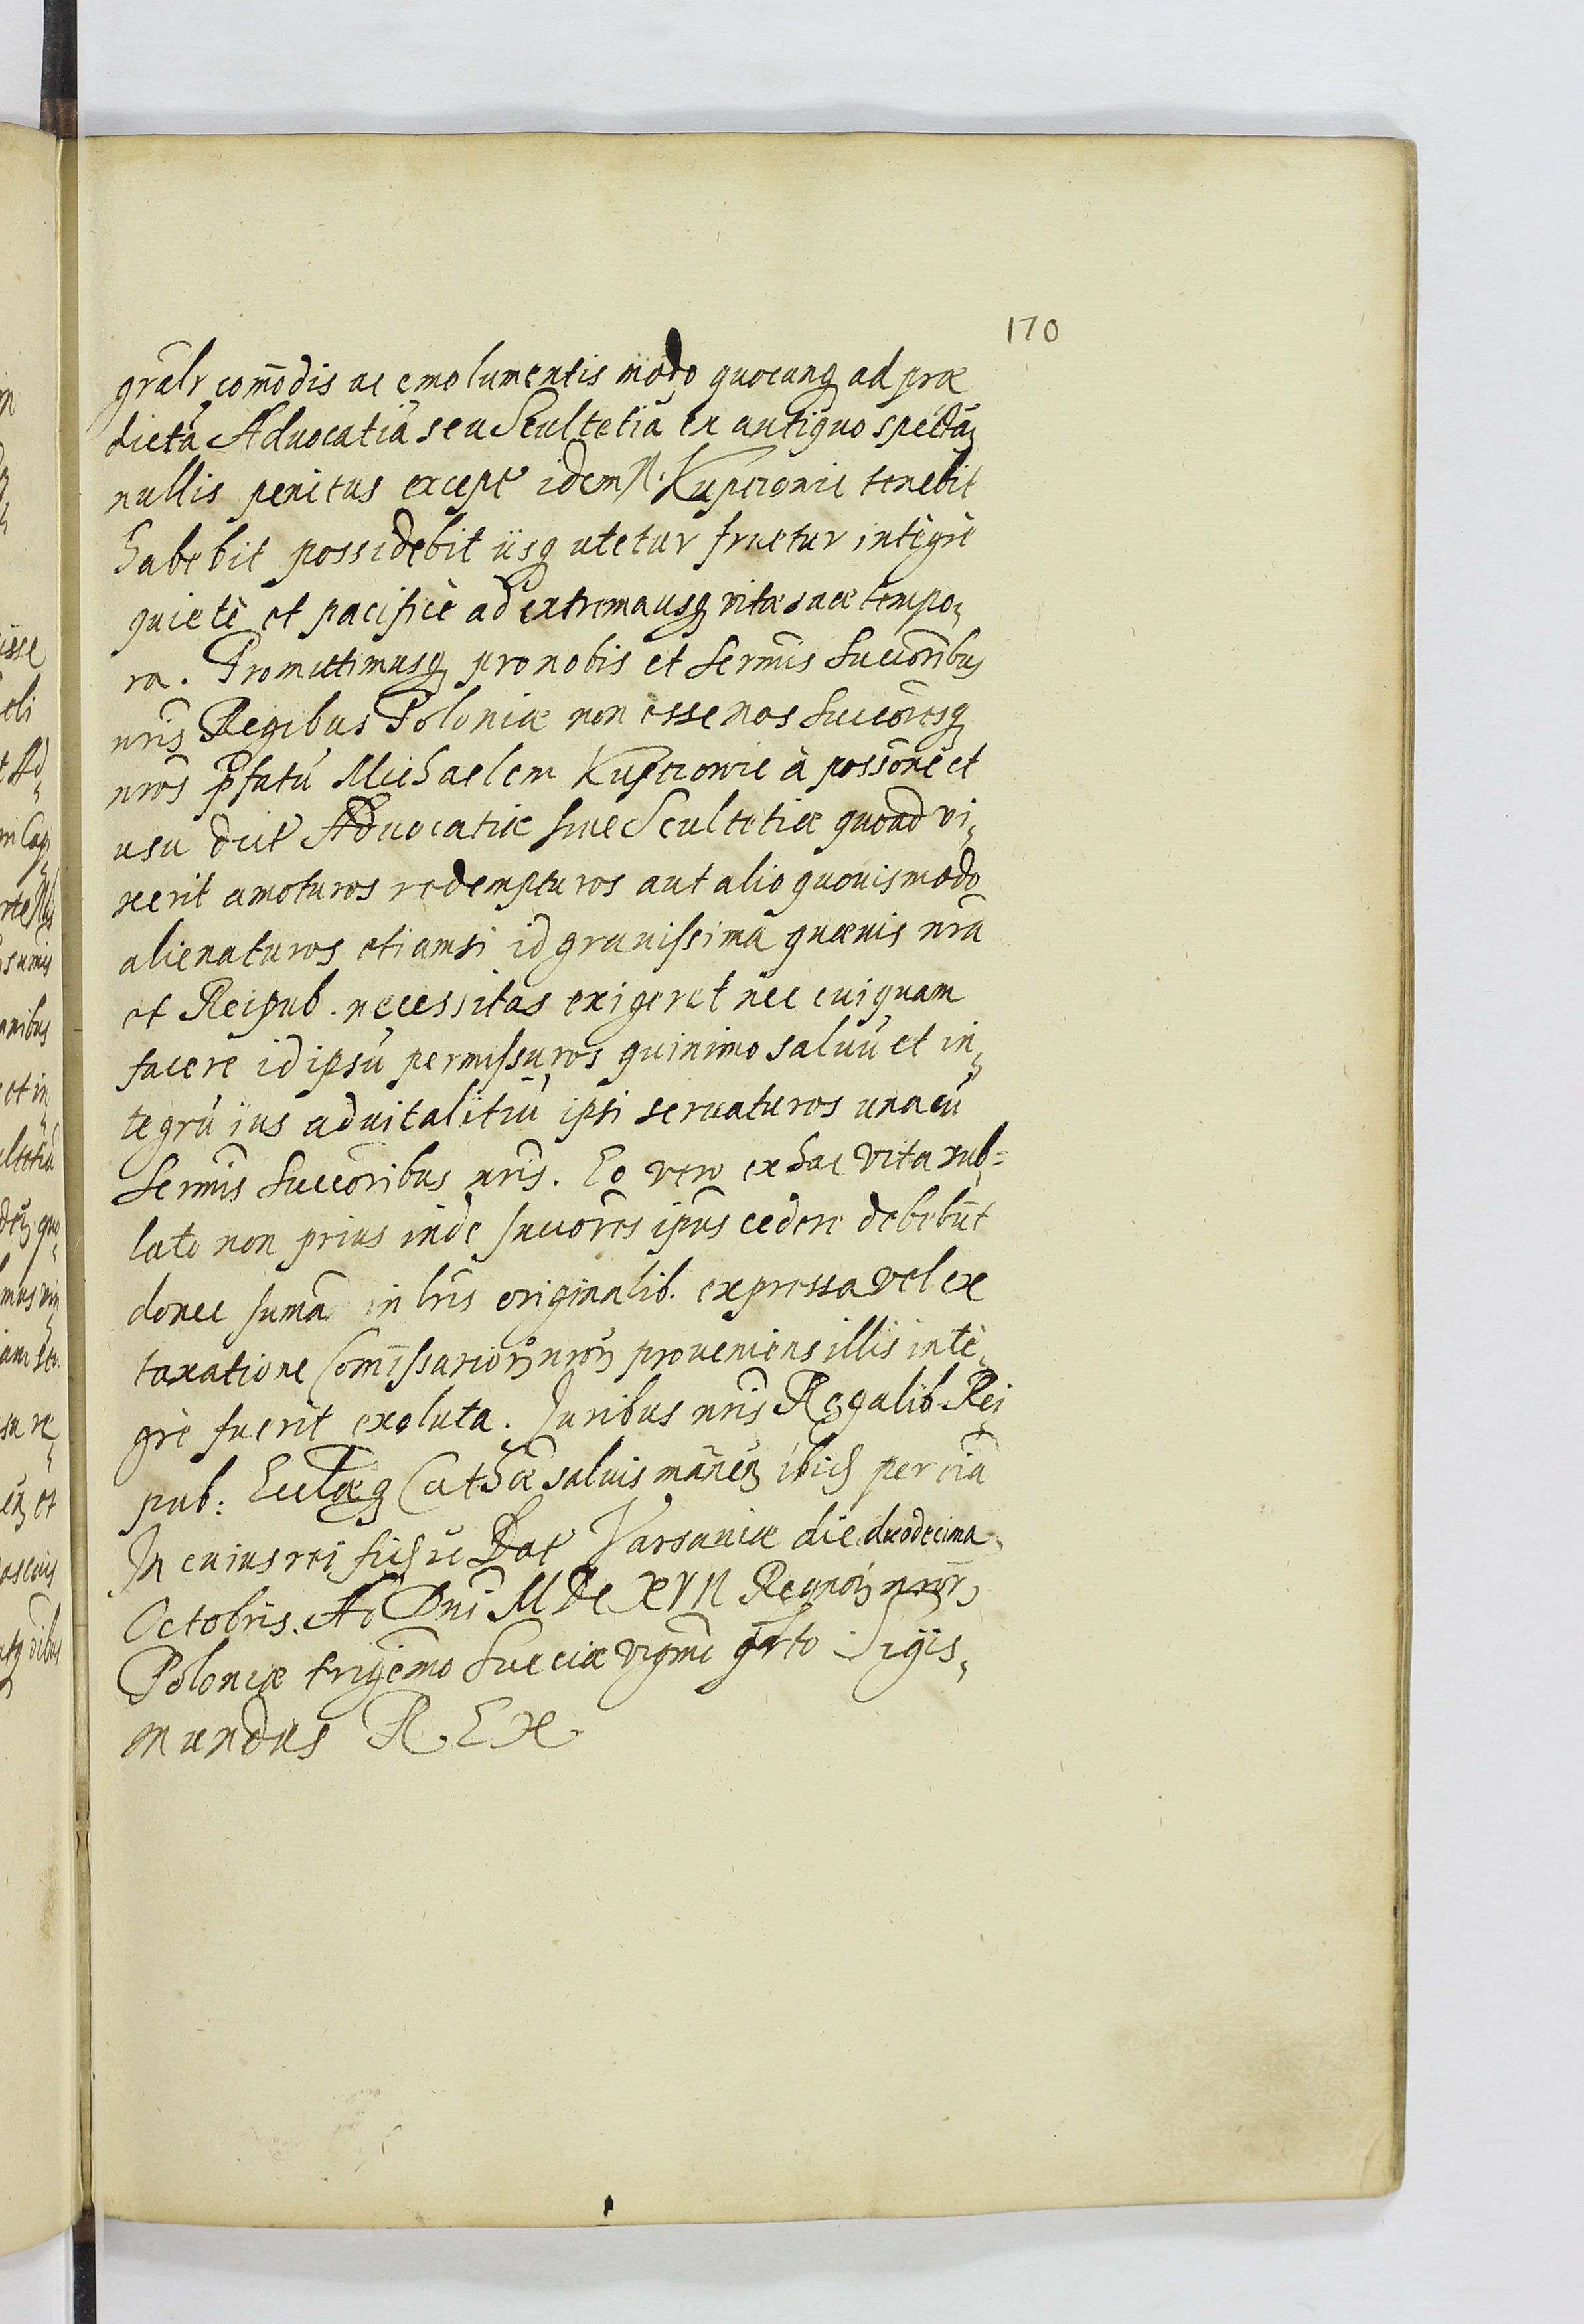 170
grãlr com̃odis ac emolumentis modo quocunq ad præ
dictã Advocatiã seu Scultetiã ex antiquo spectãn
nullis penitus except idem N. Kuperowic tenebit
habebit possidebit iisq utetur fruetur integrè
quietè et pacificè ad extrema usq vitæ suæ tempo,
ra. Promittimusq pro nobis et Sermis Succoribus
nris Regibus Poloniæ non esse nos Succoresq
nros pfatũ Michaelem Kuperowic à possone et
usu dict Advocatiæ siue Scultetiæ quoad vi,
xerit amoturos redempturos aut alio quouis modo
alienaturos etiamsi id grauissima quævis nra
et Reipub. necessitas exigeret nec cuiquam
facere id ipsũ permissuros quinimo saluũ et in,
tegrũ ius aduitalitiũ ipsi seruaturos unacũ
Sermis Succoribus nris. Eo vero ex hac vita sub=
lato non prius inde succores ipius cedere debebũt
donec sumã in lris originalib. expressa vel ex
taxatione Comissarior nror proueniens illis inte,
grè fuerit exoluta. Iuribus nris Regalib. Rei
pub: Ecclæq Cathæ saluis manen ibid per oia
In cuius rei fid &c Dat Varsauiæ die duodecima
Octobris. Ao Dni MDCXVII Regnor nror
Poloniæ trigemo Sueciæ vigmi qrto Sigis,
mundus REX